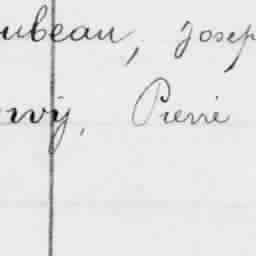 oubeau, Josep
rvy, Pierre